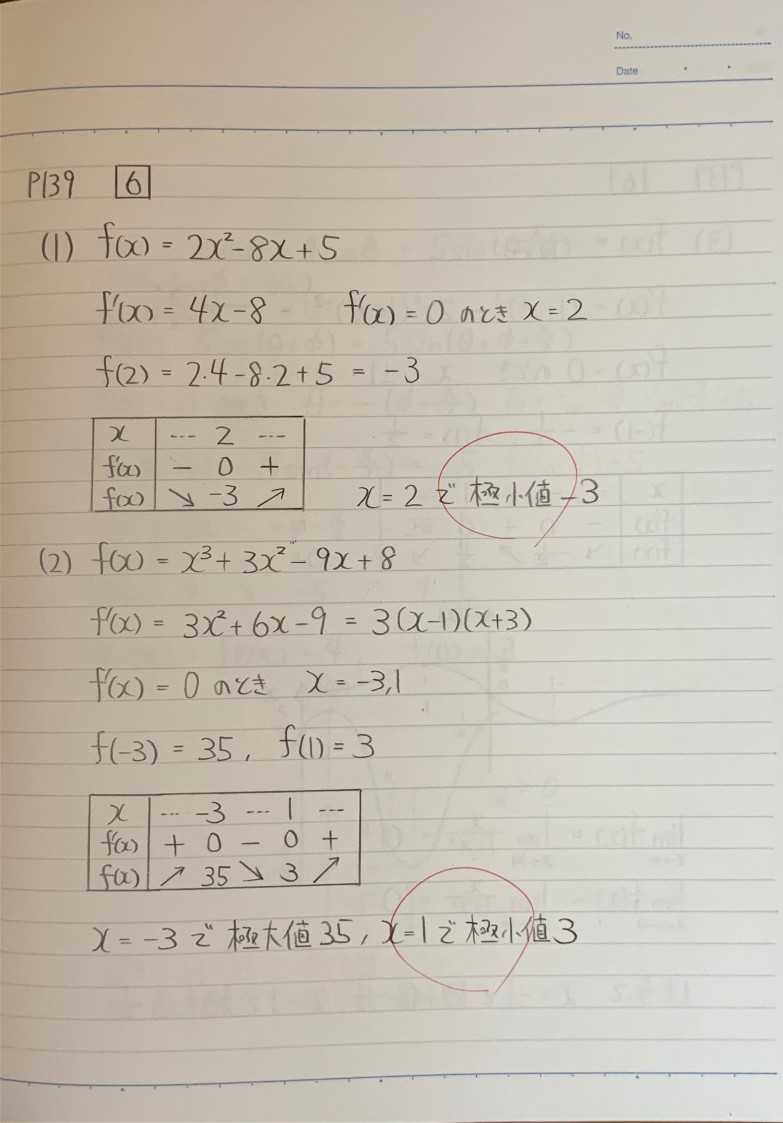 No.
Date
P139 6
(1) f(x) = 2x²-8x+5
f'(x) = 4x-8 f'(x) = 0 のとき x=2
f(2) = 2.4-8.2+5 = -3
x ... 2 ...
f'(x) - 0 +
f(x) ↘ -3 ↗ x=2 で 極小値 -3
(2) f(x) = x³+3x²-9x+8
f'(x) = 3x²+6x-9 = 3(x-1)(x+3)
f'(x) = 0 のとき x=-3,1
f(-3) = 35, f(1) = 3
x ... -3 ... 1 ...
f'(x) + 0 - 0 +
f(x) ↗ 35 ↘ 3 ↗
x=-3 で 極大値 35, x=1で 極小値 3